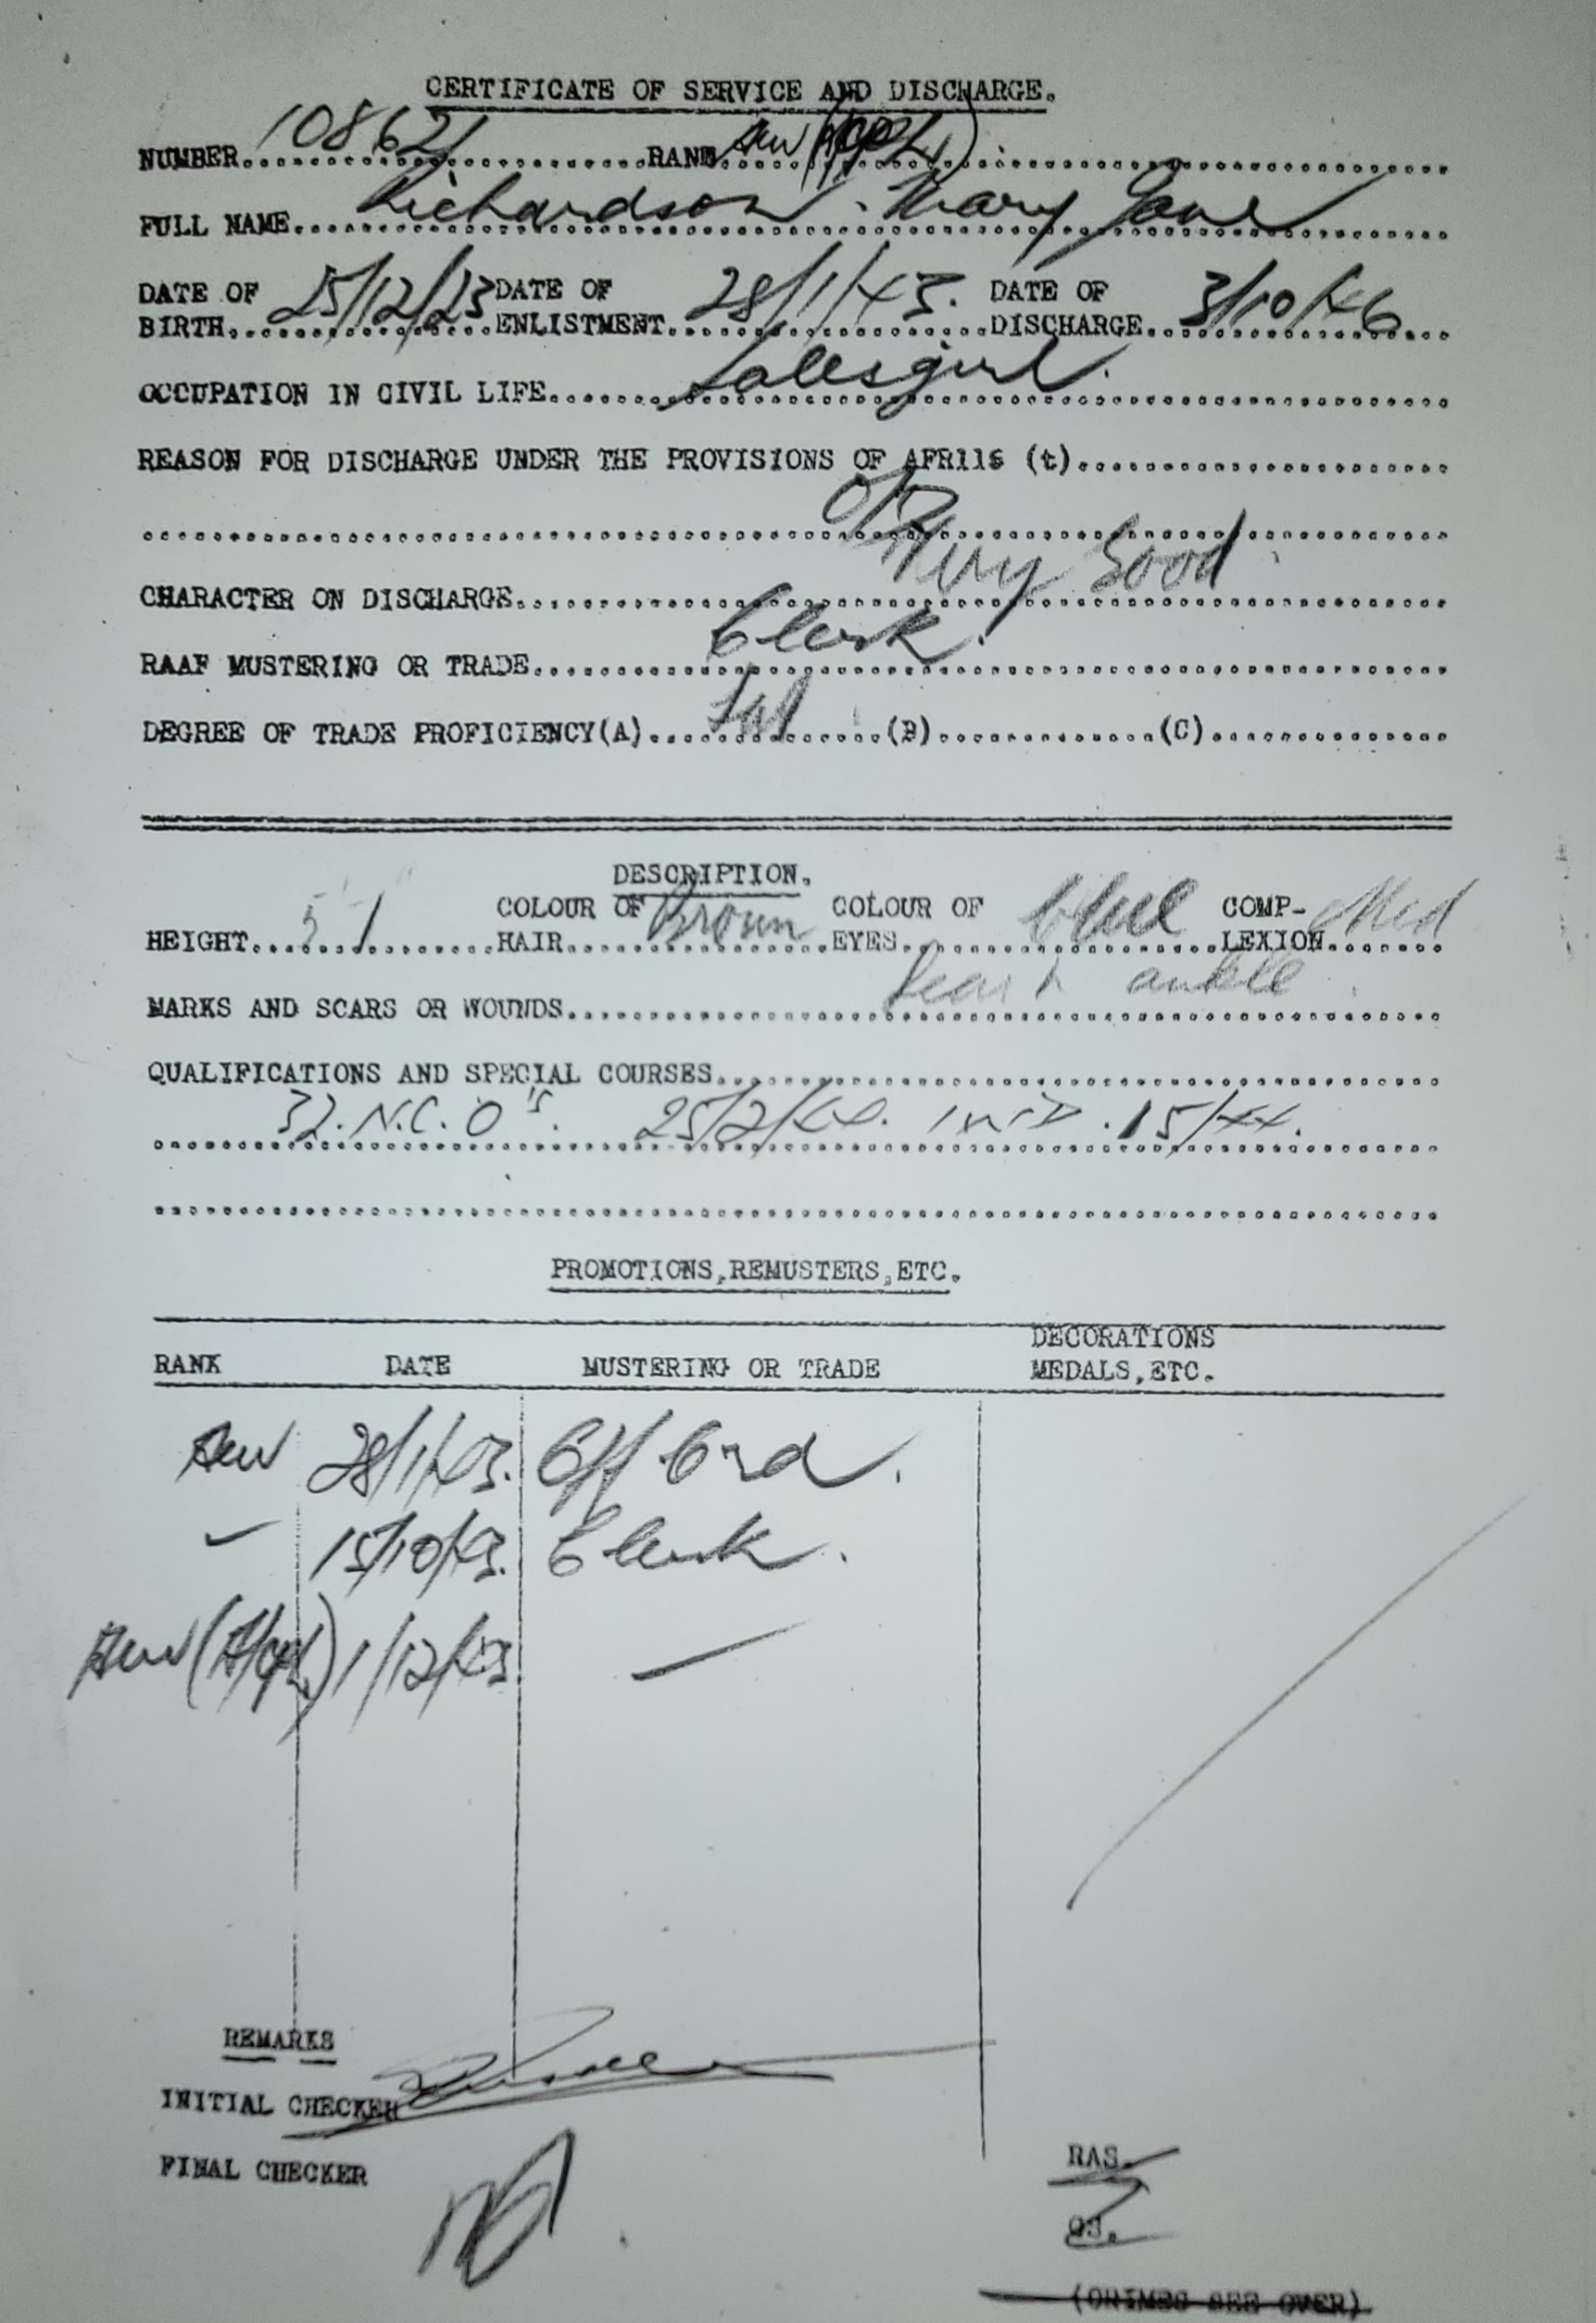 CERTIFICATE OF SERVICE AND DISCHARGE.
NUMBER 108621 RANK Acw (A/Cpl)
FULL NAME Richardson. Mary Jane
DATE OF BIRTH 25/12/23 DATE OF ENLISTMENT 28/1/43. DATE OF DISCHARGE 3/10/46
OCCUPATION IN CIVIL LIFE Salesgirl.
REASON FOR DISCHARGE UNDER THE PROVISIONS OF AFR115 (t)
CHARACTER ON DISCHARGE Very Good
RAAF MUSTERING OR TRADE Clerk.
DEGREE OF TRADE PROFICIENCY(A) (B) (C)
DESCRIPTION.
HEIGHT 5' 1 COLOUR OF HAIR Brown COLOUR OF EYES blue COMP-LEXION Med
MARKS AND SCARS OR WOUNDS Scar ankle
QUALIFICATIONS AND SPECIAL COURSES
32. N.C.O's. 25/2/44. 15/44.
PROMOTIONS,REMUSTERS,ETC.
RANK DATE MUSTERING OR TRADE DECORATIONS MEDALS,ETC.
Acw 28/1/43.
15/10/43. Clerk.
Acw (A/Cpl) 1/12/43.
REMARKS
INITIAL CHECKER
FINAL CHECKER
RAS.
(CRIMES SEE OVER)